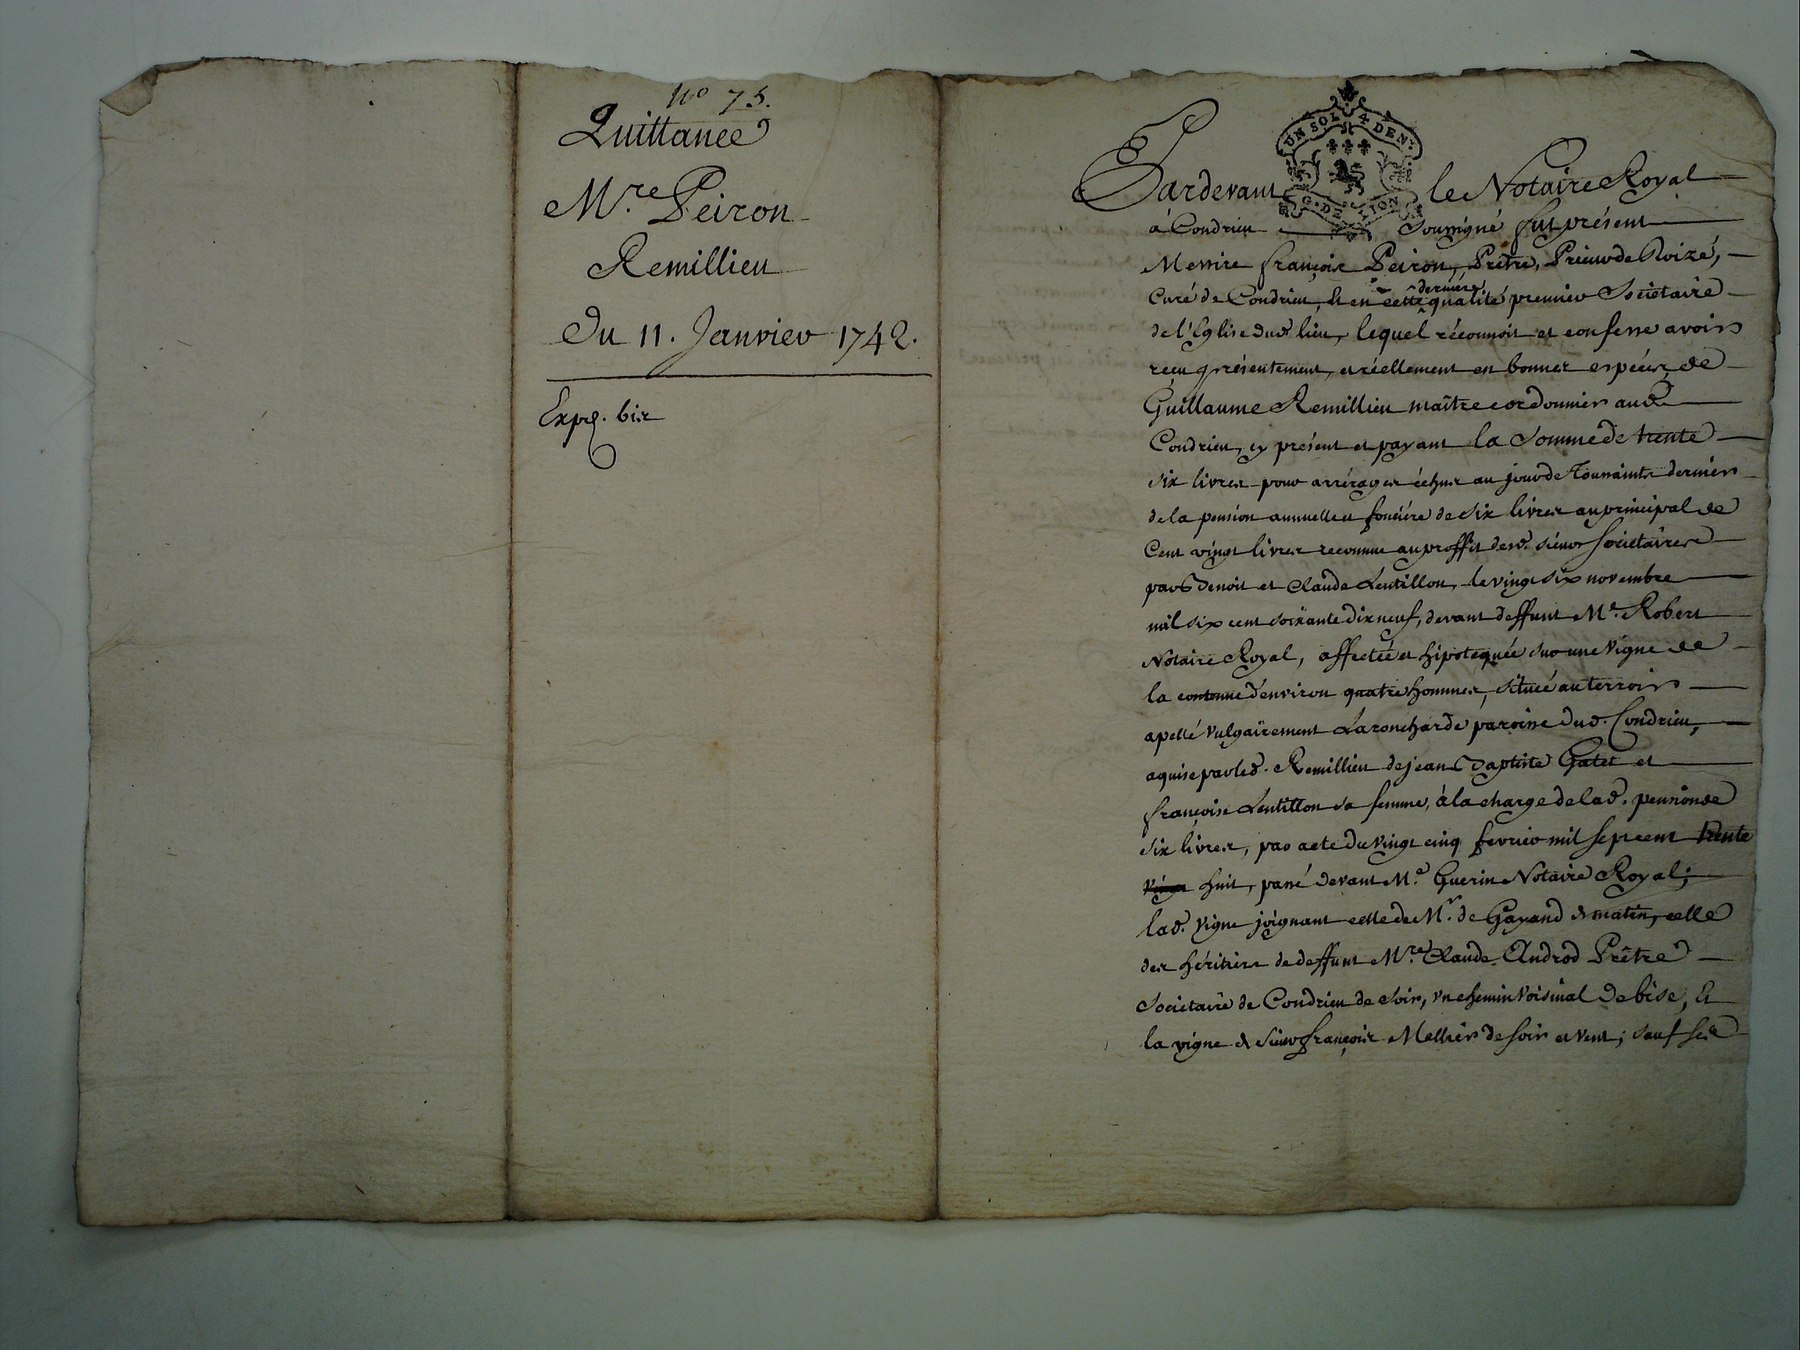 N.o 75.
Quittance
M.re Peiron
Remillieu
Du 11. Janvier 1742.
Exp.é bis
UN SOL 4 DEN.
G. DE LION
Pardevant le Notaire Royal
à Condrieu soussigné fut présent
Messire françois Peiron, Prêtre, Prieur de Roizé,
Curé de Condrieu, & en cette derniere qualité premier Societaire
de l'Eglise dud. lieu, lequel réconnoit et confesse avoir
reçu présentement, et réellement en bonnes espéces, de
Guillaume Remillieu maître cordonnier aud.
Condrieu, cy présent et payant la somme de trente
six livres pour arrérages échus au jour de Toussaints dernier
de la pension annuelle et fonciére de six livres au principal de
Cent vingt livres reconnue au proffit desd. sieurs Societaires
par Benoit et Claude Lentillon, le vingt six novembre
mil six cent soixante dix neuf, devant deffunt M.e Robert
Notaire Royal, affectée et hipotequée sur une vigne de
la contenue d'environ quatre hommes, située au terroir
apellé vulgairement Laroncharde paroisse dud. Condrieu,
aquise par led. Remillieu de jean Baptiste Gatet et
françoise Lentillon sa femme, à la charge de lad. pension de
six livres, par acte du vingt cinq fevrier mil sept cent trente
huit, passé devant M.e Guerin Notaire Royal;
lad. vigne joignant celle de M.r de Gayand de matin, celle
des héritiers de deffunt M.re Claude Androd Prêtre
Societaire de Condrieu de soir, un chemin voisinal de bise, &
la vigne de sieur françois Mellier de soir et vent; sauf ses